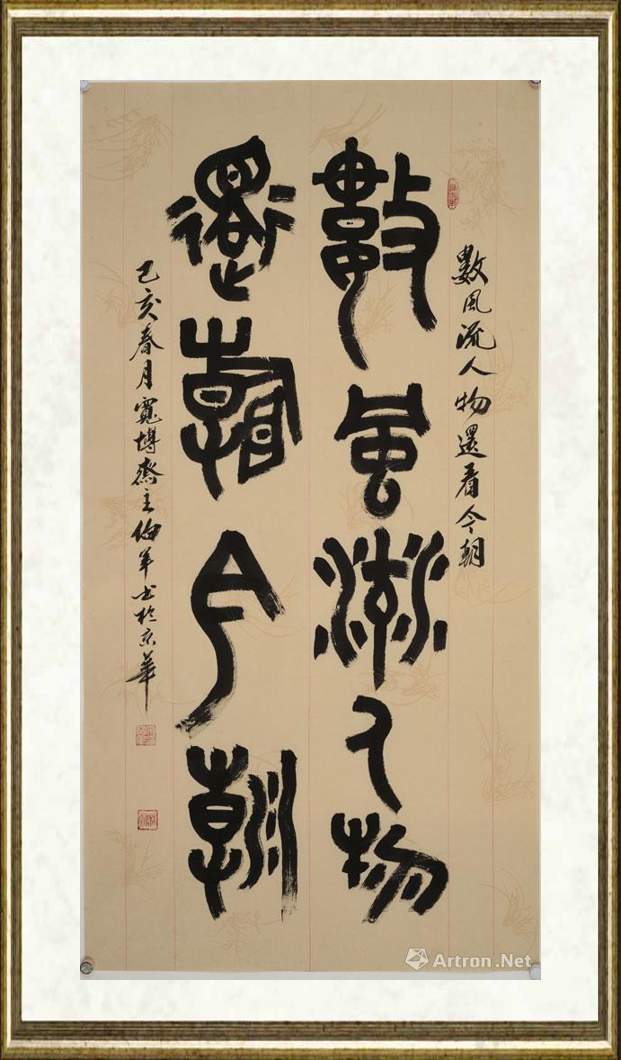 數風流人物還看今朝
數風流人物
還看今朝
己亥春月寬博齋主伯年书於京華
Artron.Net